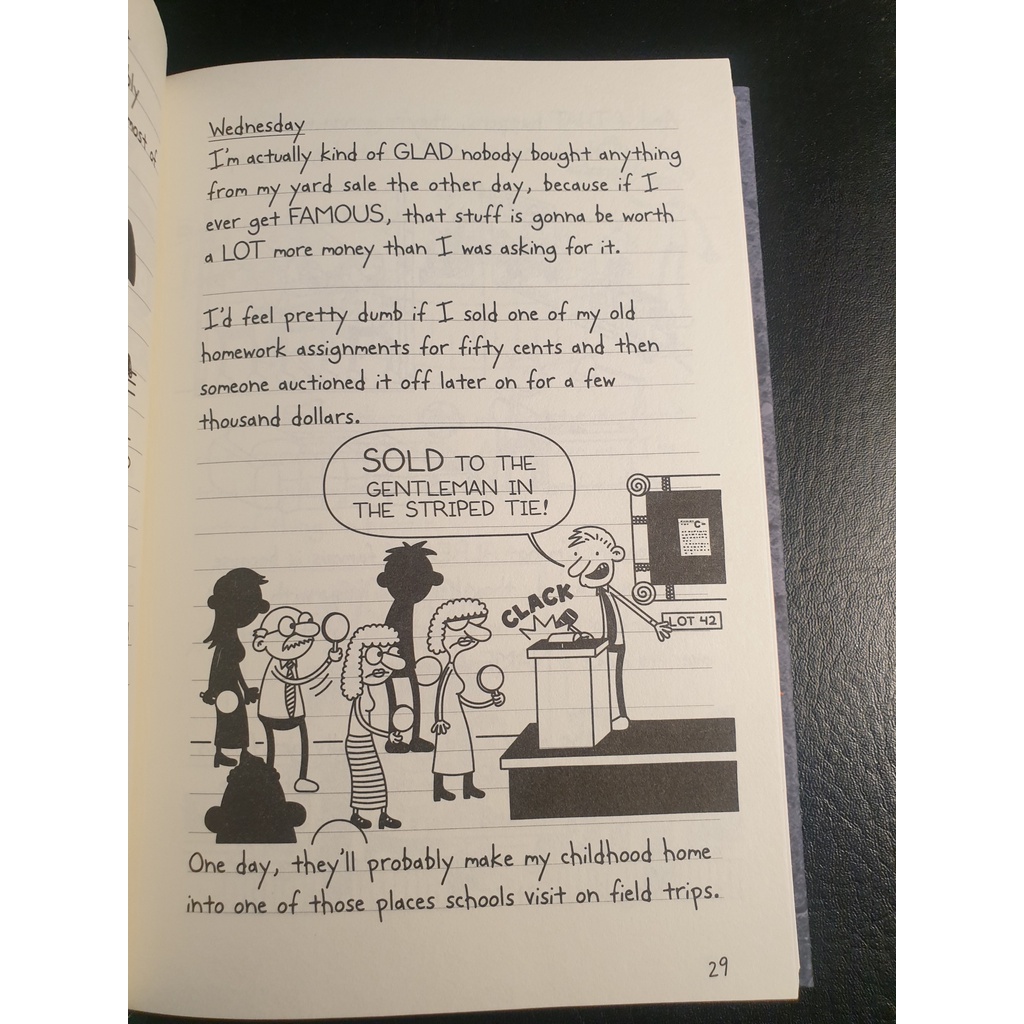 ply
most of
Wednesday
I'm actually kind of GLAD nobody bought anything
from my yard sale the other day, because if I
ever get FAMOUS, that stuff is gonna be worth
a LOT more money than I was asking for it.
I'd feel pretty dumb if I sold one of my old
homework assignments for fifty cents and then
someone auctioned it off later on for a few
thousand dollars.
SOLD TO THE
GENTLEMAN IN
THE STRIPED TIE!
C-
CLACK
LOT 42
One day, they'll probably make my childhood home
into one of those places schools visit on field trips.
29